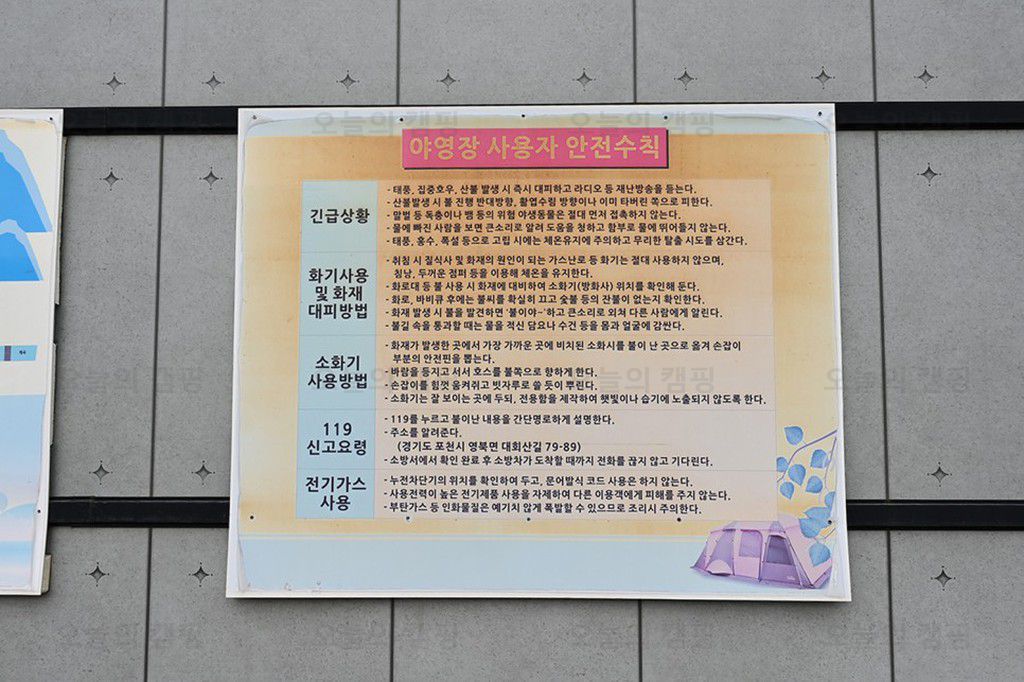 야영장 사용자 안전수칙
긴급상황
- 태풍, 집중호우, 산불 발생 시 즉시 대피하고 라디오 등 재난방송을 듣는다.
- 산불발생 시 불 진행 반대방향, 활엽수림 방향이나 이미 타버린 쪽으로 피한다.
- 말벌 등 독충이나 뱀 등의 위험 야생동물은 절대 먼저 접촉하지 않는다.
- 물에 빠진 사람을 보면 큰소리로 알려 도움을 청하고 함부로 물에 뛰어들지 않는다.
- 태풍, 홍수, 폭설 등으로 고립 시에는 체온유지에 주의하고 무리한 탈출 시도를 삼간다.
화기사용
및 화재
대피방법
- 취침 시 질식사 및 화재의 원인이 되는 가스난로 등 화기는 절대 사용하지 않으며,
침낭, 두꺼운 점퍼 등을 이용해 체온을 유지한다.
- 화로대 등 불 사용 시 화재에 대비하여 소화기(방화사) 위치를 확인해 둔다.
- 화로, 바비큐 후에는 불씨를 확실히 끄고 숯불 등의 잔불이 없는지 확인한다.
- 화재 발생 시 불을 발견하면 '불이야~'하고 큰소리로 외쳐 다른 사람에게 알린다.
- 불길 속을 통과할 때는 물을 적신 담요나 수건 등을 몸과 얼굴에 감싼다.
소화기
사용방법
- 화재가 발생한 곳에서 가장 가까운 곳에 비치된 소화시를 불이 난 곳으로 옮겨 손잡이
부분의 안전핀을 뽑는다.
- 바람을 등지고 서서 호스를 불쪽으로 향하게 한다.
- 손잡이를 힘껏 움켜쥐고 빗자루로 쓸 듯이 뿌린다.
- 소화기는 잘 보이는 곳에 두되, 전용함을 제작하여 햇빛이나 습기에 노출되지 않도록 한다.
119
신고요령
- 119를 누르고 불이난 내용을 간단명로하게 설명한다.
- 주소를 알려준다.
(경기도 포천시 영북면 대회산길 79-89)
- 소방서에서 확인 완료 후 소방차가 도착할 때까지 전화를 끊지 않고 기다린다.
전기가스
사용
- 누전차단기의 위치를 확인하여 두고, 문어발식 코드 사용은 하지 않는다.
- 사용전력이 높은 전기제품 사용을 자제하여 다른 이용객에게 피해를 주지 않는다.
- 부탄가스 등 인화물질은 예기치 않게 폭발할 수 있으므로 조리시 주의한다.
오늘의 캠핑